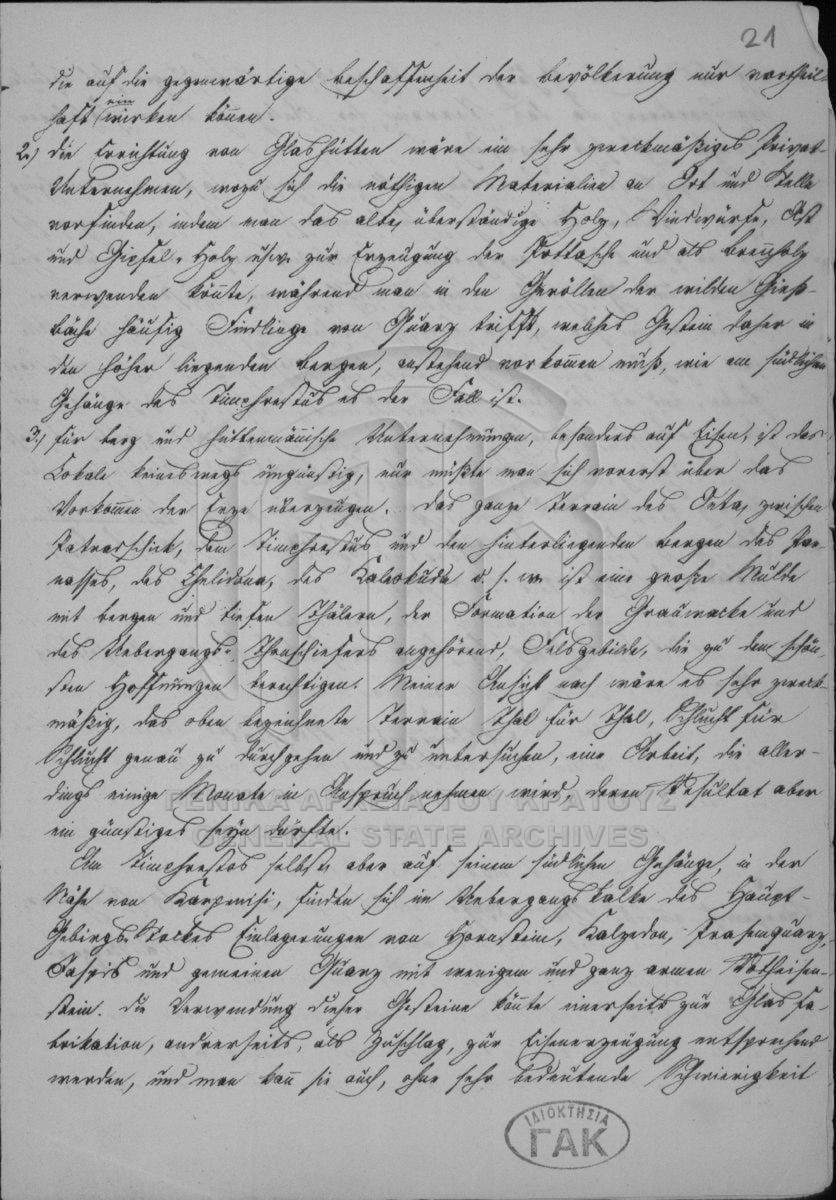 21
die auf die gegenwärtige Beschaffenheit der Bevölkerung nur vortheil-
haft einwirken können.
2.) Die Errichtung von Glashütten wäre ein sehr zweckmäßiges Privat-
Unternehmen, wozu sich die nöthigen Materialien an Ort und Stelle
vorfinden, indem man das alte, überständige Holz, Windwürfe, Ast
und Gipfel-Holz usw. zur Erzeugung der Pottasche und als Brennholz
verwenden könnte, während man in den Geröllen der wilden Gieß-
bäche häufig Findlinge von Quarz trifft, welches Gestein daher in
den höher liegenden Bergen, anstehend vorkommen muß, wie am südlichen
Gehänge des Timphrestus es der Fall ist.
3.) Für berg und hüttenmännische Unternehmungen, besonders auf Eisen, ist das
Lokale keineswegs ungünstig, nur müßte man sich vorerst über das
Vorkommen der Erze überzeugen. Das ganze Terrain des Oeta, zwischen
Patradschick, dem Timphrestus und den hinterliegenden Bergen des Par-
nasses, des Chelidona, des Kaliakuda u. s. w. ist eine große Mulde
mit Bergen und tiefen Thälern, der Formation der Grauwacke und
des Uebergangs-Thonschiefers angehörend, Felsgebilde, die zu dem schön-
sten Hoffnungen berechtigen. Meiner Ansicht nach wäre es sehr zweck-
mäßig, das oben bezeichnete Terrain Thal für Thal, Schlucht für
Schlucht genau zu durchgehen und zu untersuchen, eine Arbeit, die aller-
dings einige Monate in Anspruch nehmen wird, deren Resultat aber
ein günstiges seyn dürfte.
Am Timphrestos selbst, aber auf seinem südlichen Gehänge, in der
Nähe von Karpenisi, finden sich im Uebergangskalke des Haupt-
Gebirgs-Stockes Einlagerungen von Hornstein, Kalzedon, Prasemquarz,
Jaspis und gemeinen Quarz mit wenigem und ganz armen Rotheisen-
stein. Die Verwendung dieser Gesteine könnte einerseits zur Glasfa-
brikation, andrerseits, als Zuschlag, zur Eisenerzeugung entsprechend
werden, und man kann sie auch, ohne sehr bedeutende Schwierigkeit
ΓΕΝΙΚΑ ΑΡΧΕΙΑ ΤΟΥ ΚΡΑΤΟΥΣ
GENERAL STATE ARCHIVES
ΙΔΙΟΚΤΗΣΙΑ
ΓΑΚ